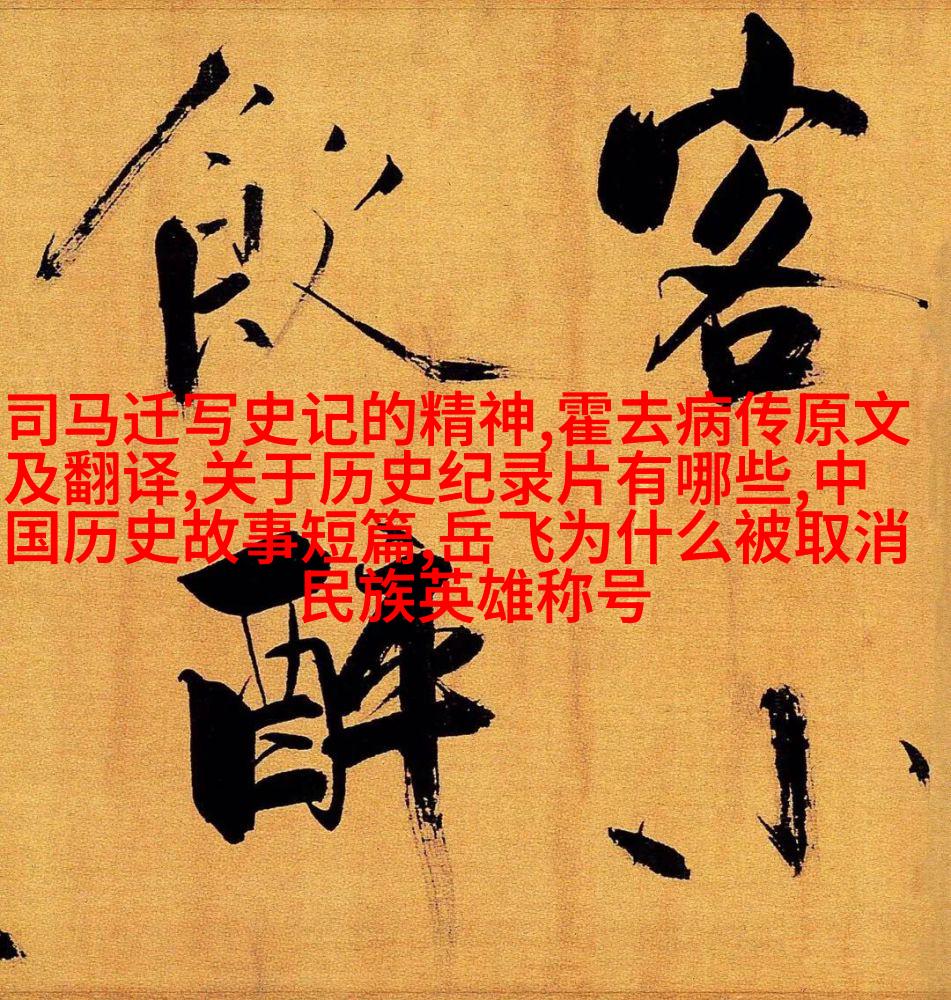 客小
飲醉
司马迁写史记的精神,霍去病传原文
及翻译,关于历史纪录片有哪些,中
国历史故事短篇,岳飞为什么被取消
民族英雄称号